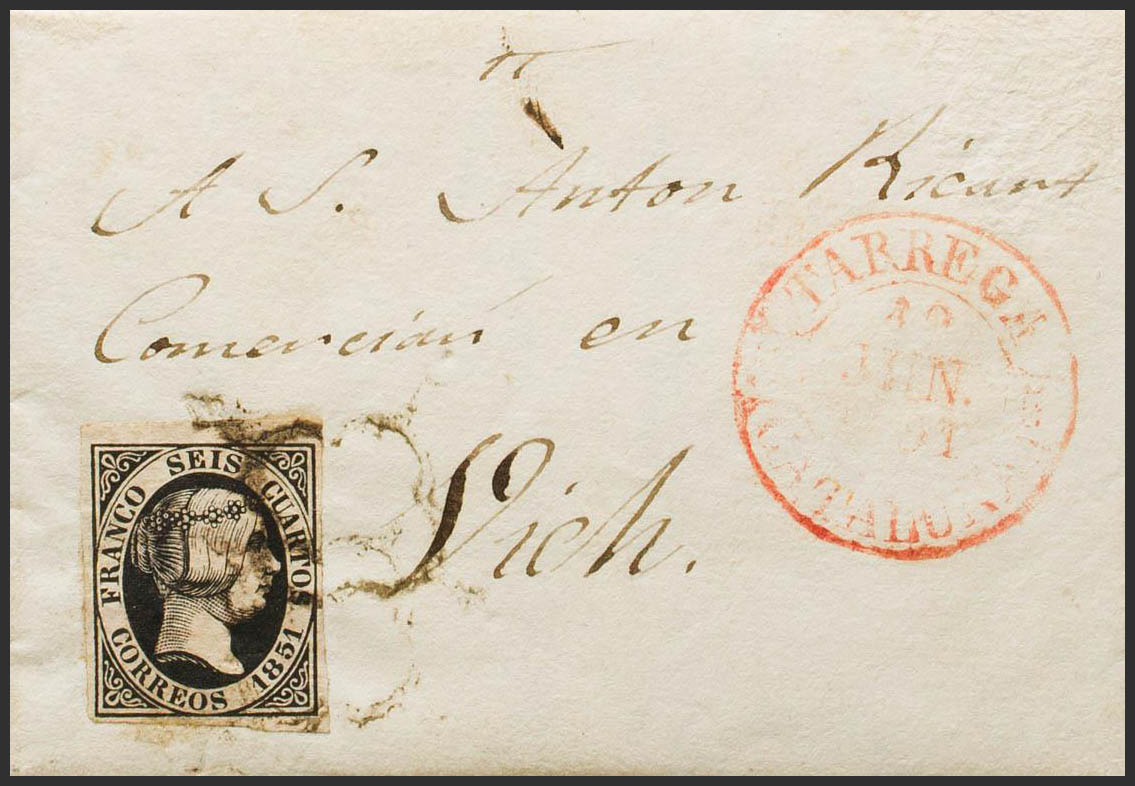 A S. Anton Ricart
Comerciant en
Vich.
TARREGA
JUN.
CATALUÑA
FRANCO SEIS CUARTOS
CORREOS 1851